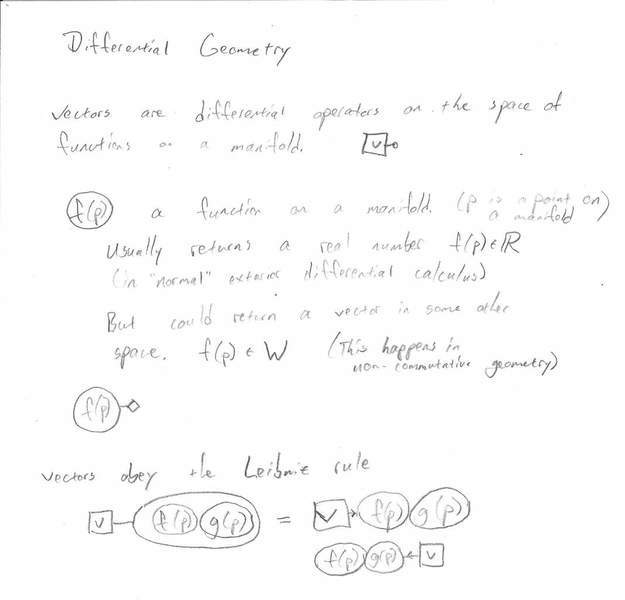 Differential Geometry
vectors are differential operators on the space of
functions on a manifold. v
f(p) a function on a manifold. (p is a point on
a manifold)
Usually returns a real number f(p) ∈ ℝ
(in "normal" exterior differential calculus)
But could return a vector in some other
space. f(p) ∈ W (This happens in
non-commutative geometry)
f(p)
vectors obey the Leibniz rule
v f(p) g(p) = v f(p) g(p)
f(p) g(p) v